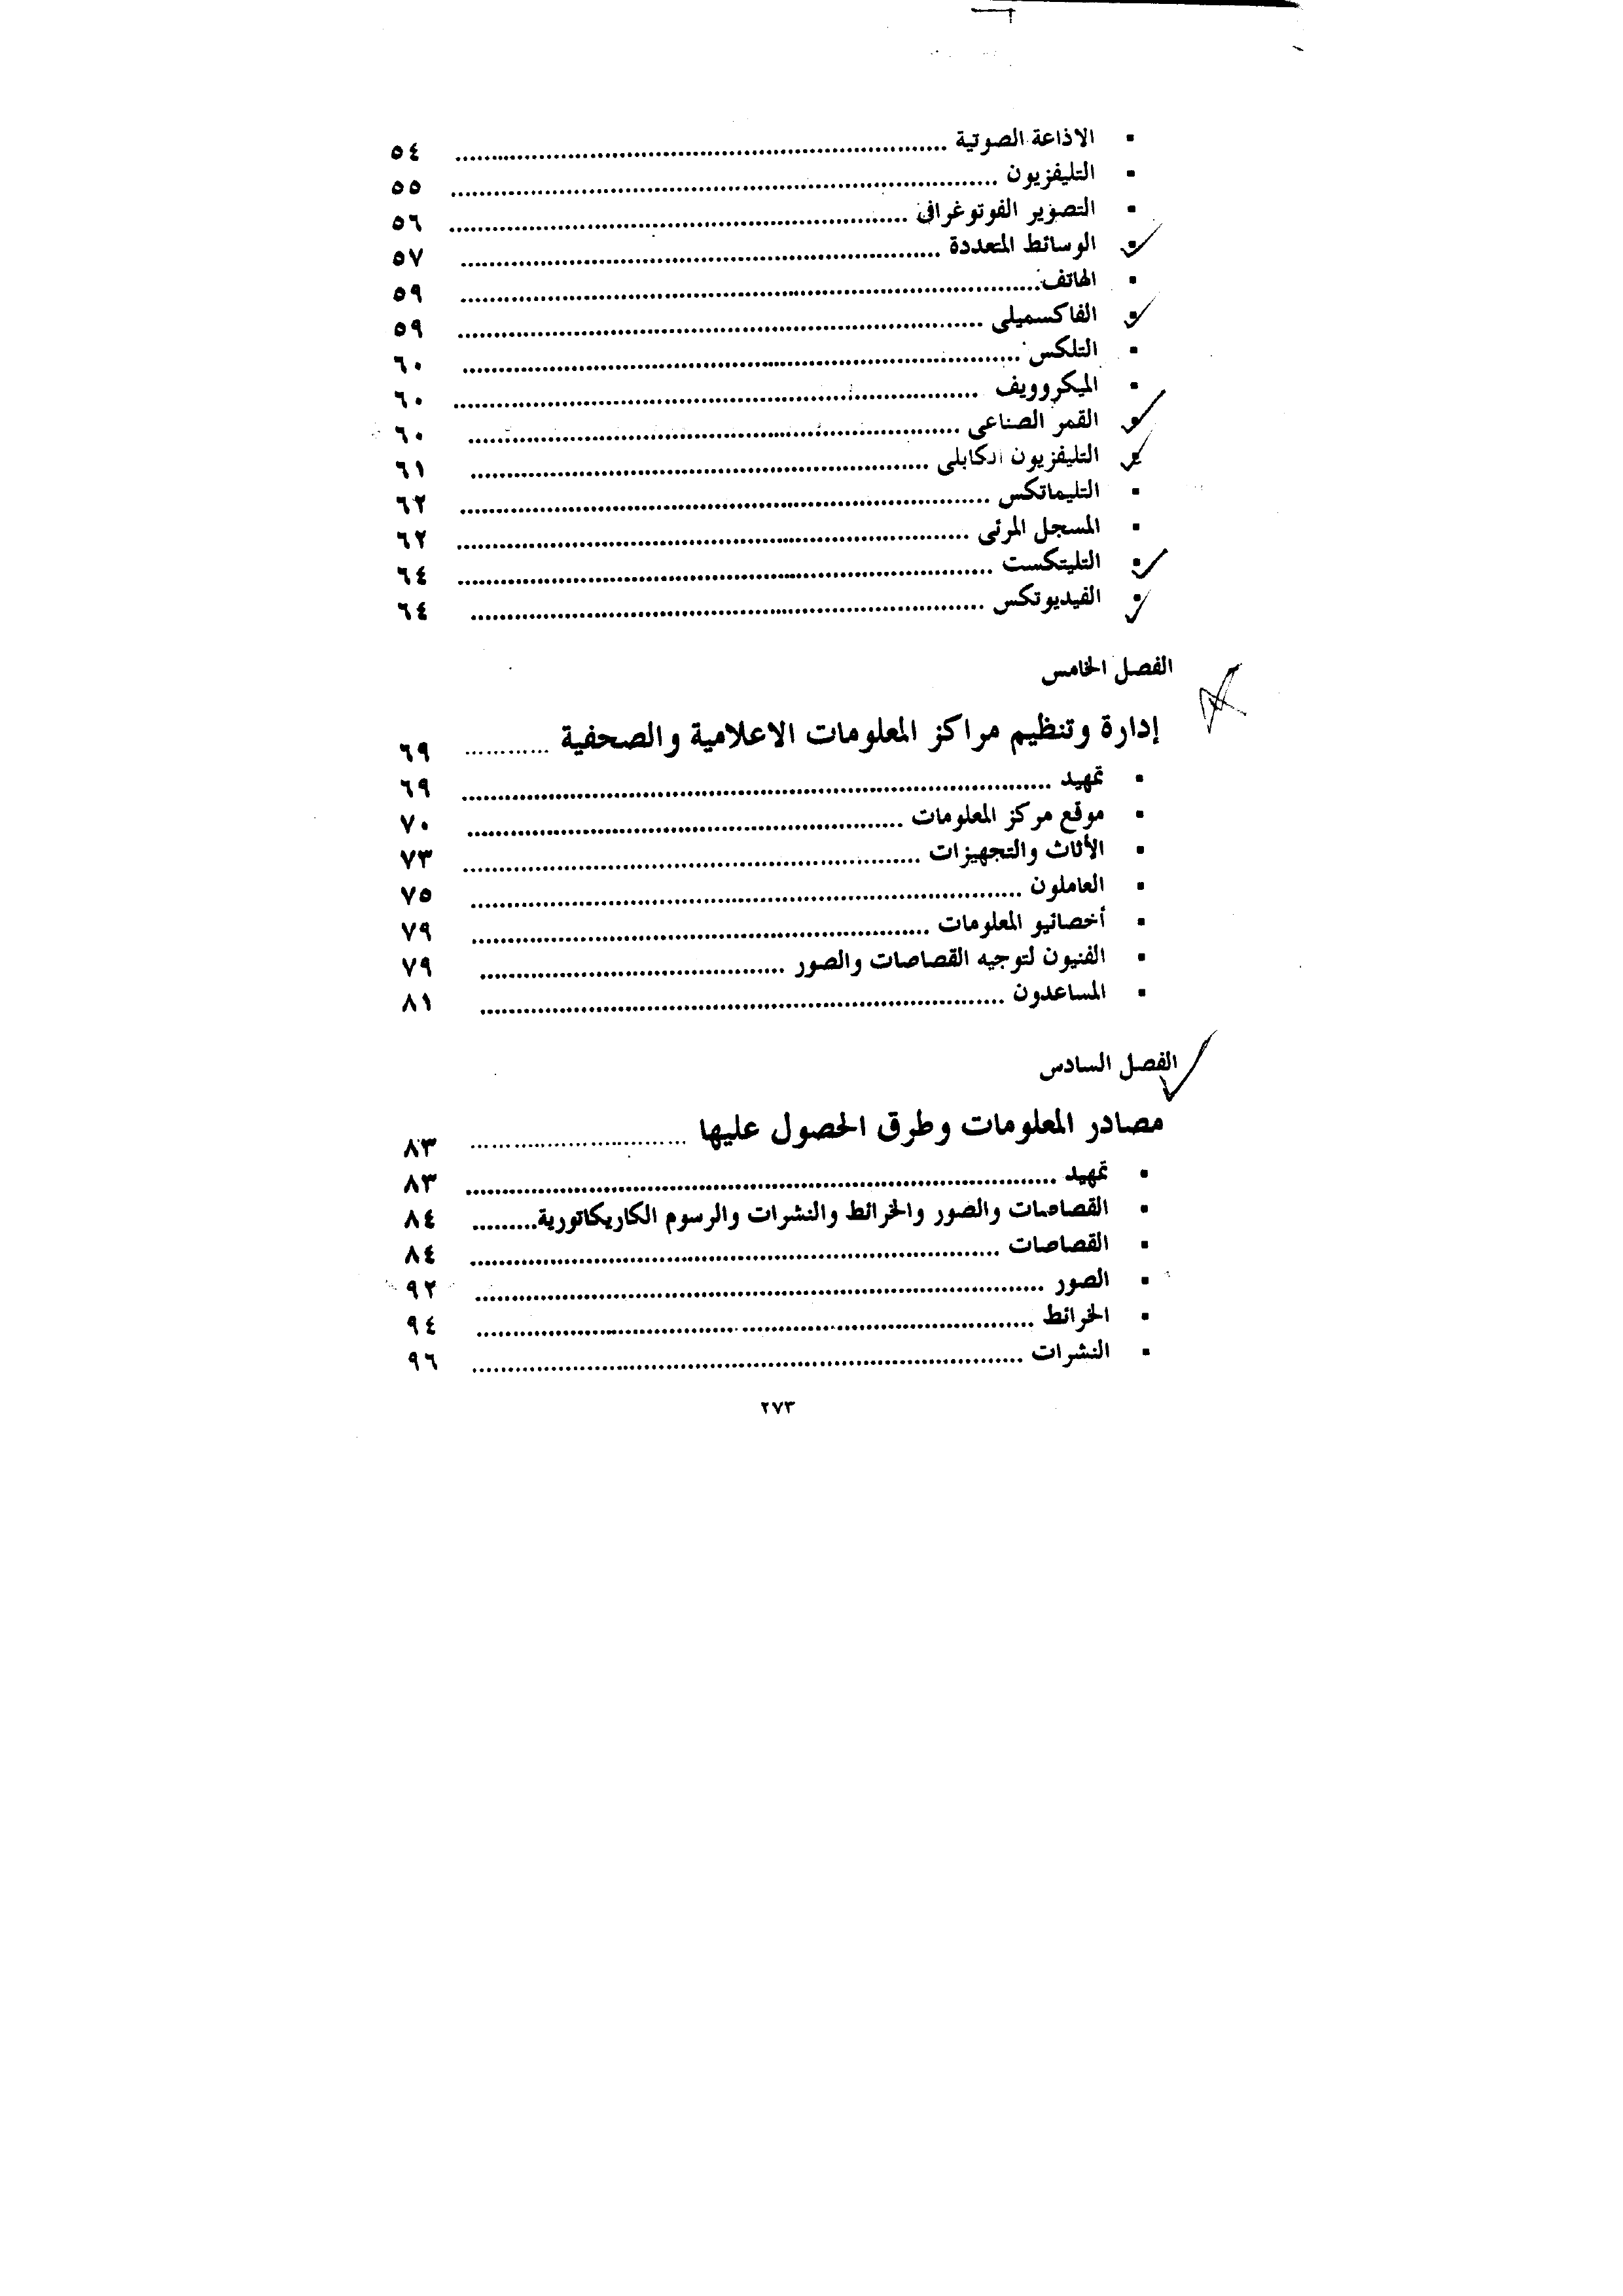 ▪ الاذاعة الصوتية .......... ٥٤
▪ التليفزيون .......... ٥٥
▪ التصوير الفوتوغرافى .......... ٥٦
▪ الوسائط المتعددة .......... ٥٧
▪ الهاتف .......... ٥٩
▪ الفاكسميلى .......... ٥٩
▪ التلكس .......... ٦٠
▪ الميكروويف .......... ٦٠
▪ القمر الصناعى .......... ٦٠
▪ التليفزيون الكابلى .......... ٦١
▪ التليماتكس .......... ٦٢
▪ المسجل المرئى .......... ٦٢
▪ التليتكست .......... ٦٤
▪ الفيديوتكس .......... ٦٤
الفصل الخامس
إدارة وتنظيم مراكز المعلومات الاعلامية والصحفية .......... ٦٩
▪ تمهيد .......... ٦٩
▪ موقع مركز المعلومات .......... ٧٠
▪ الأثاث والتجهيزات .......... ٧٣
▪ العاملون .......... ٧٥
▪ أخصائيو المعلومات .......... ٧٩
▪ الفنيون لتوجيه القصاصات والصور .......... ٧٩
▪ المساعدون .......... ٨١
الفصل السادس
مصادر المعلومات وطرق الحصول عليها .......... ٨٣
▪ تمهيد .......... ٨٣
▪ القصاصات والصور والخرائط والنشرات والرسوم الكاريكاتورية .......... ٨٤
▪ القصاصات .......... ٨٤
▪ الصور .......... ٩٢
▪ الخرائط .......... ٩٤
▪ النشرات .......... ٩٦
٢٧٣